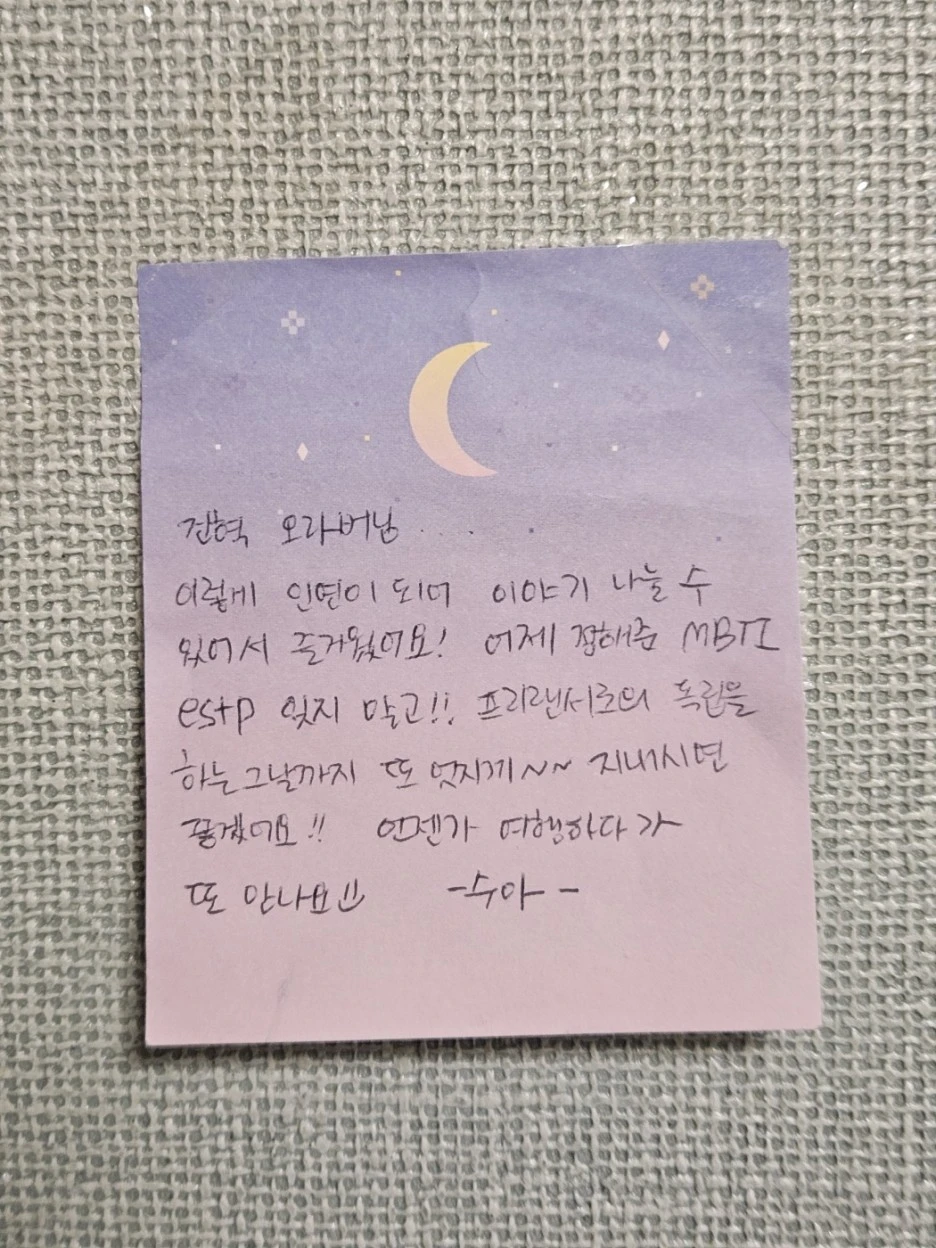 진혁 오라버님...
이렇게 인연이 되어 이야기 나눌 수
있어서 즐거웠어요! 어제 정해준 MBTI
estp 잊지 말고!! 프리랜서로의 독립을
하는 그날까지 또 멋지게~~ 지내시면
좋겠어요!! 언젠가 여행하다가
또 만나요!!    -수아-